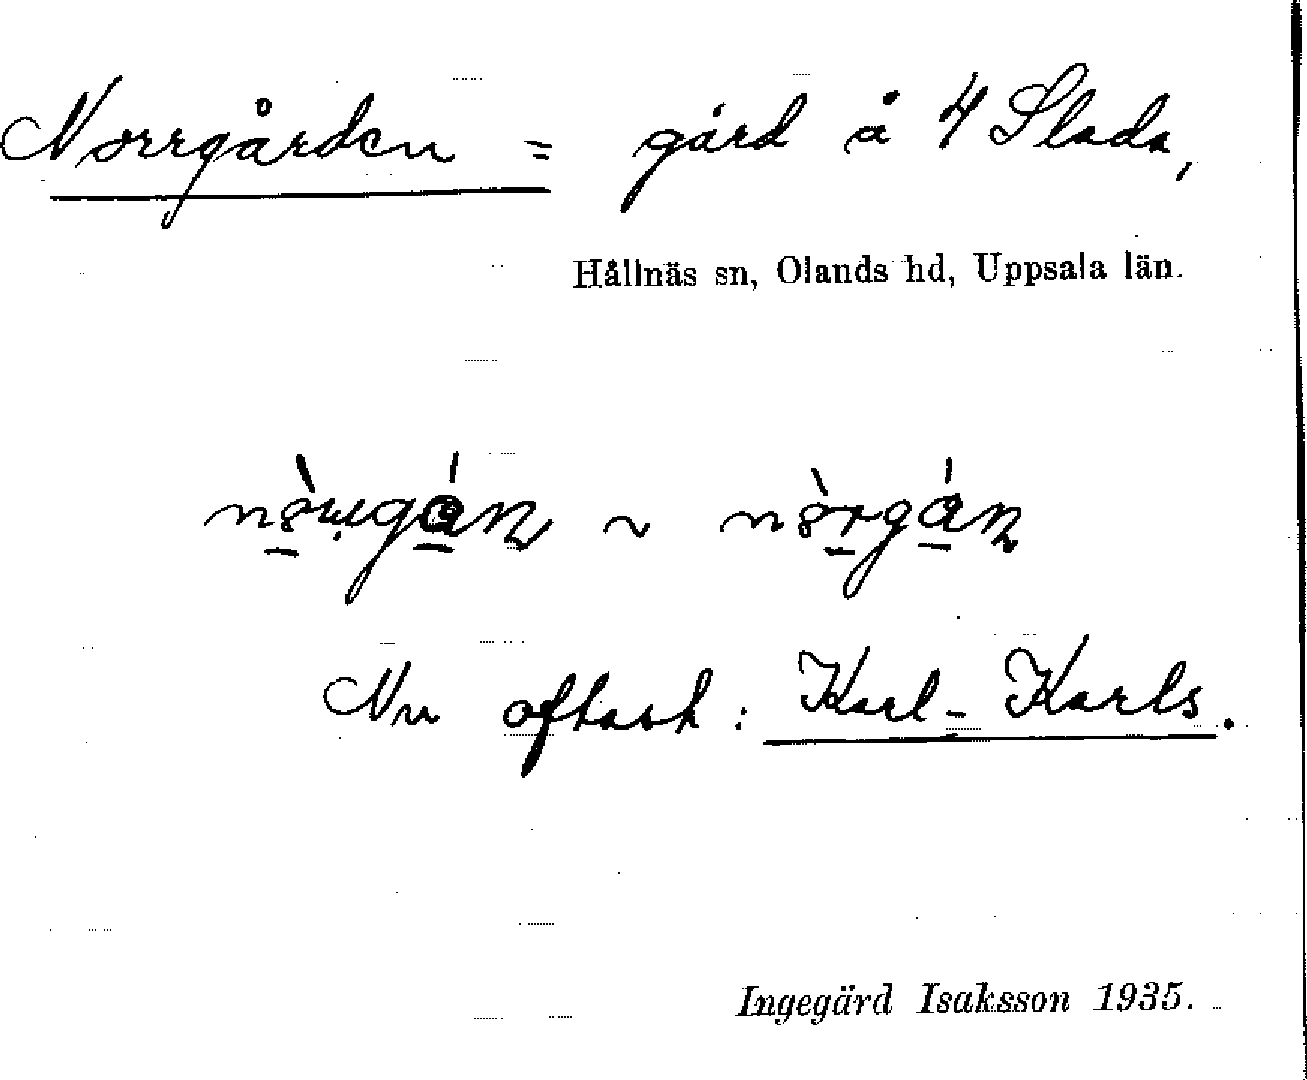 Norrgården = gård å 4 Slada,
Hållnäs sn, Olands hd, Uppsala län.
~
Nu oftast: Karl-Karls.
Ingegärd Isaksson 1935.